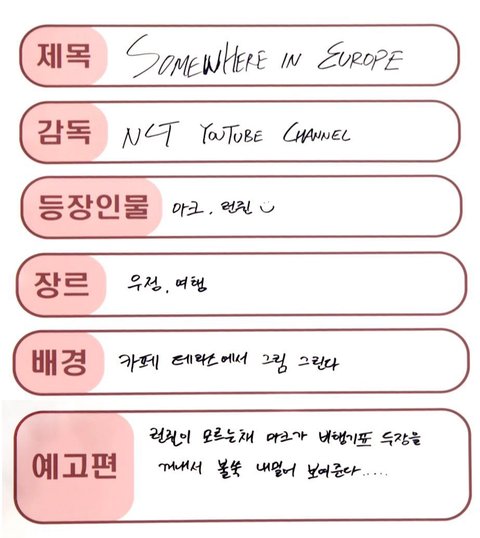 제목 SOMEWHERE IN EUROPE
감독 NCT YOUTUBE CHANNEL
등장인물 마크, 런쥔 :)
장르 우정, 여행
배경 카페 테라스에서 그림 그린다
예고편 런쥔이 모르는채 마크가 비행기표 두장을
꺼내서 불쑥 내밀어 보여준다.....